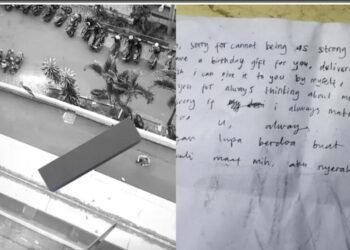 , sorry for cannot being as strong
a birthday gift for you, deliver
i can give it to you by myself,
you for always thinking about m
sorry is i always mak
u, always
lupa berdoa buat
maaf mih, aku nyerah